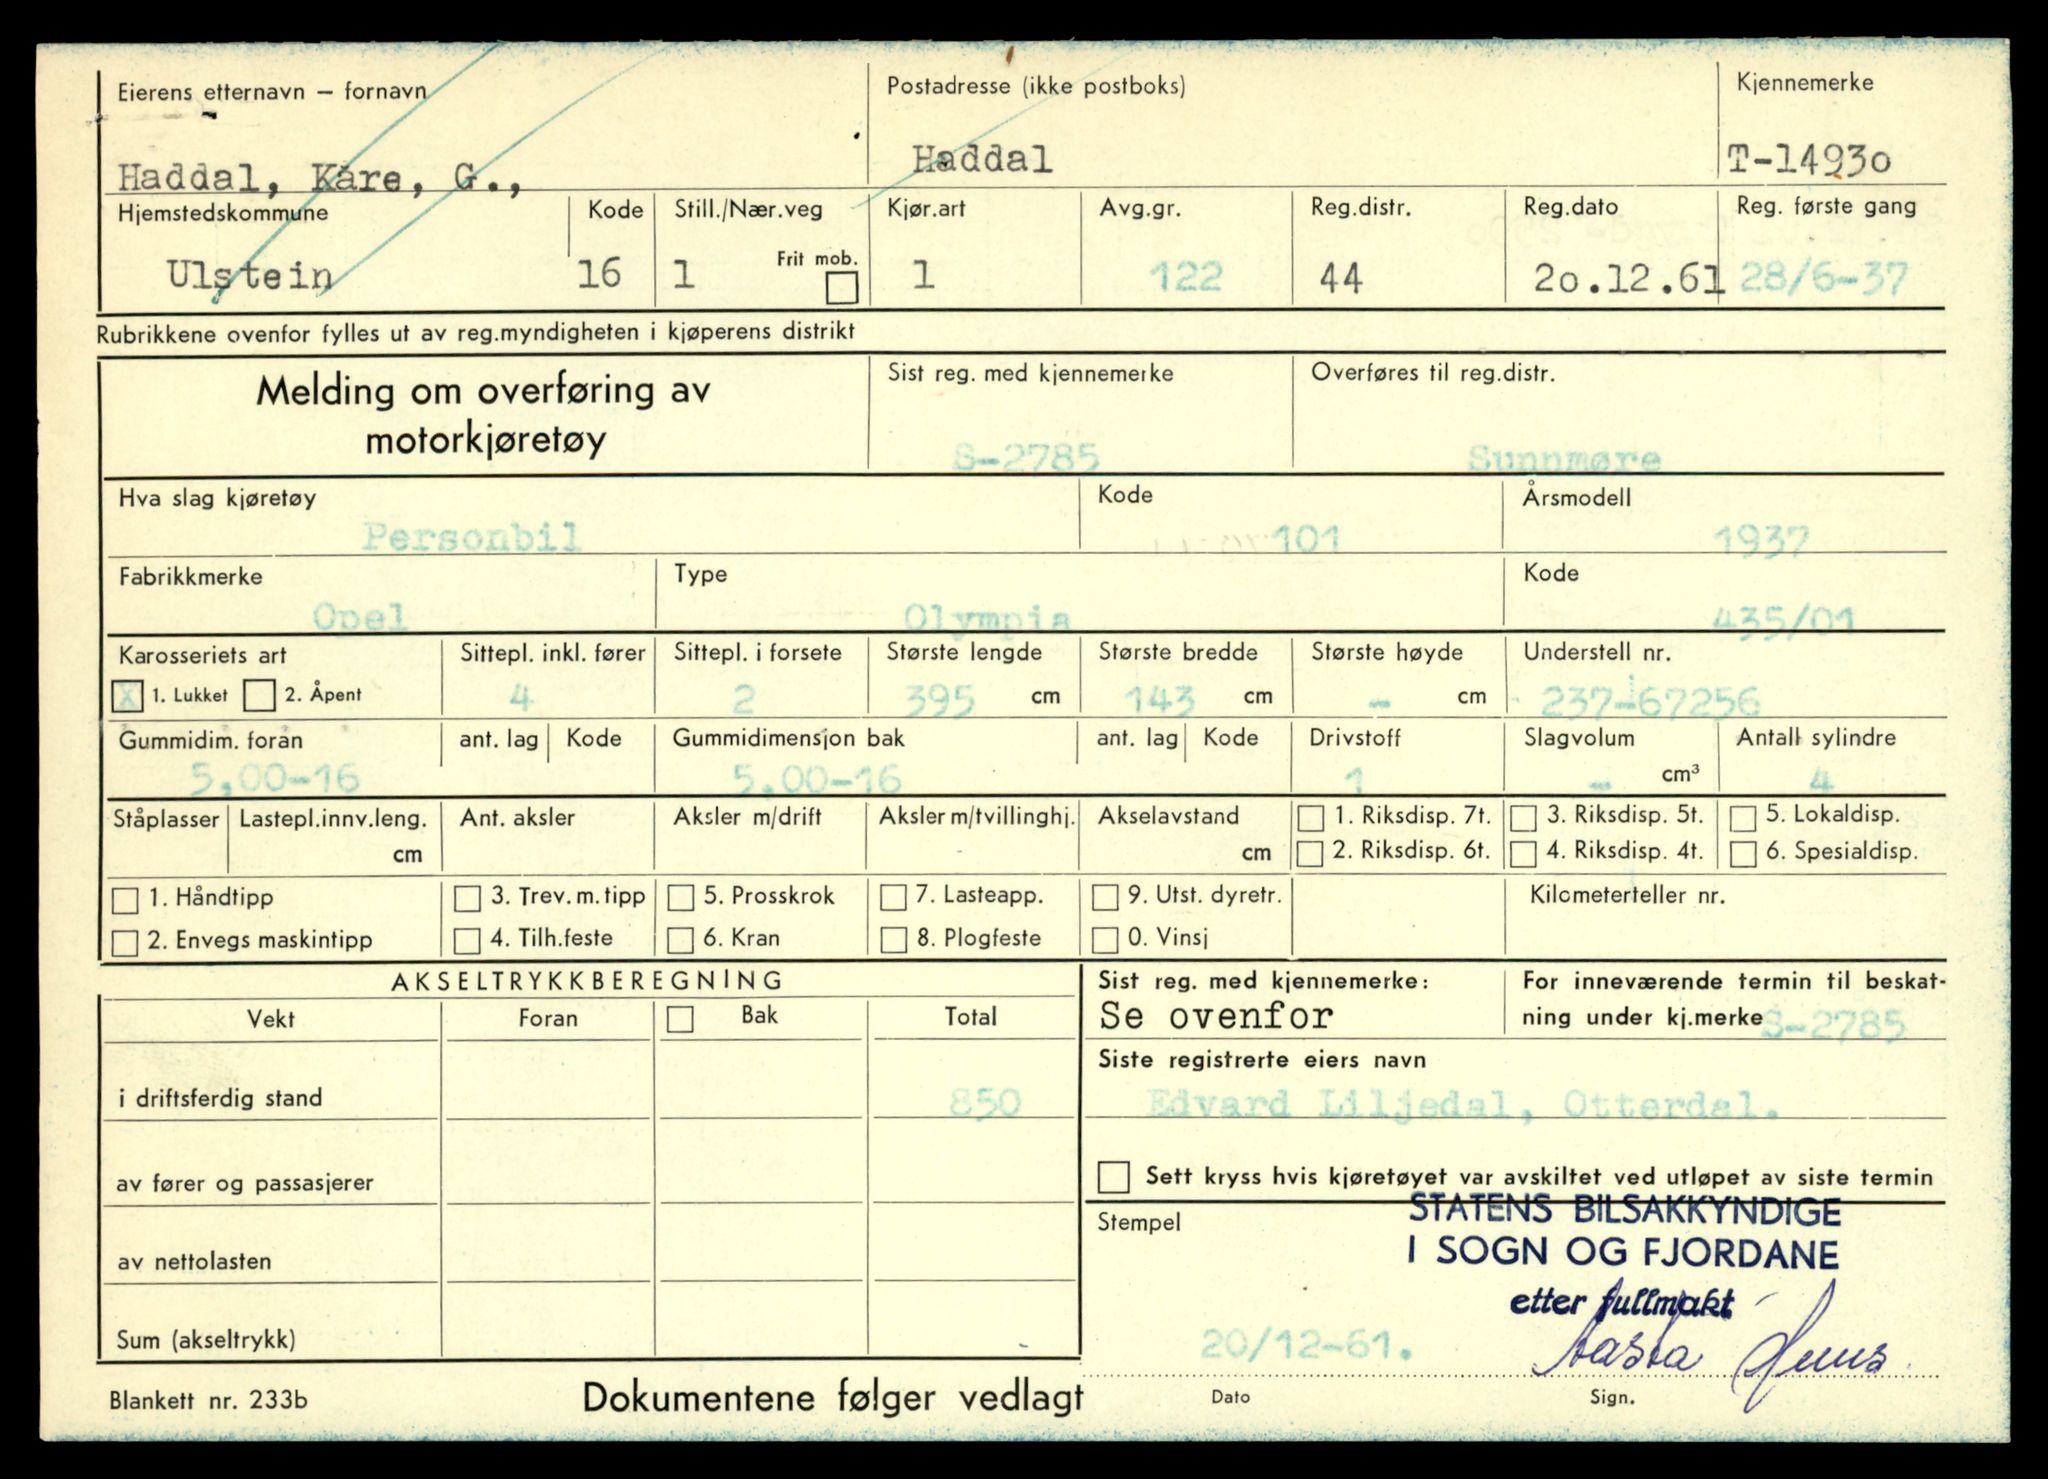 Eierens etternavn – fornavn
Postadresse (ikke postboks)
Kjennemerke
Haddal, Kåre, G.,
Haddal
T-14930
Hjemstedskommune Kode Still./Nær.veg Kjør.art Avg.gr. Reg.distr. Reg.dato Reg. første gang
Frit mob.
Ulstein 16 1 1 122 44 20.12.61 28/6-37
Rubrikkene ovenfor fylles ut av reg.myndigheten i kjøperens distrikt
Melding om overføring av
motorkjøretøy
Sist reg. med kjennemerke
S-2785
Overføres til reg.distr.
Sunnmøre
Hva slag kjøretøy Kode Årsmodell
Personbil 101 1937
Fabrikkmerke Type Kode
Opel Olympia 435/01
Karosseriets art Sittepl. inkl. fører Sittepl. i forsete Største lengde Største bredde Største høyde Understell nr.
X 1. Lukket 2. Åpent 4 2 395 cm 143 cm - cm 237-67256
Gummidim. foran ant. lag Kode Gummidimensjon bak ant. lag Kode Drivstoff Slagvolum Antall sylindre
5,00-16 5,00-16 1 - cm³ 4
Ståplasser Lastepl.innv.leng. Ant. aksler Aksler m/drift Aksler m/tvillinghj. Akselavstand 1. Riksdisp. 7t. 3. Riksdisp. 5t. 5. Lokaldisp.
cm cm 2. Riksdisp. 6t. 4. Riksdisp. 4t. 6. Spesialdisp.
1. Håndtipp 3. Trev. m. tipp 5. Prosskrok 7. Lasteapp. 9. Utst. dyretr. Kilometerteller nr.
2. Envegs maskintipp 4. Tilh.feste 6. Kran 8. Plogfeste 0. Vinsj
AKSELTRYKKBEREGNING
Vekt Foran Bak Total
i driftsferdig stand 850
av fører og passasjerer
av nettolasten
Sum (akseltrykk)
Sist reg. med kjennemerke:
Se ovenfor
For inneværende termin til beskat-
ning under kj.merke S-2785
Siste registrerte eiers navn
Edvard Liljedal, Otterdal.
Sett kryss hvis kjøretøyet var avskiltet ved utløpet av siste termin
Stempel
STATENS BILSAKKYNDIGE
I SOGN OG FJORDANE
etter fullmakt
20/12-61.
Aasta
Dato Sign.
Blankett nr. 233b
Dokumentene følger vedlagt